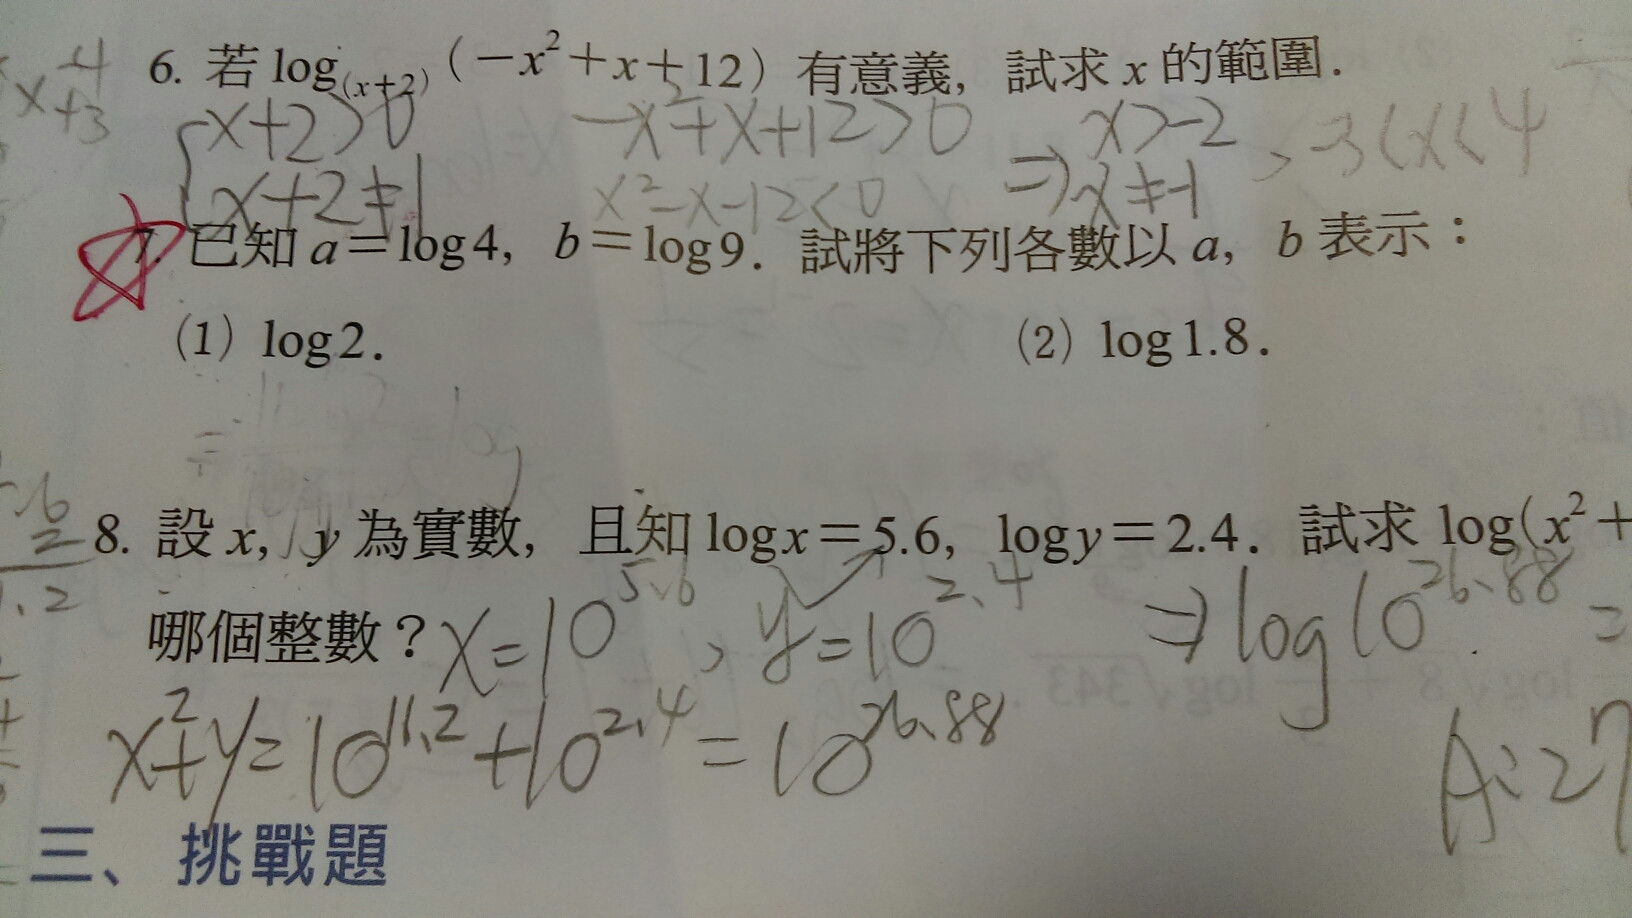 6. 若 log₍ₓ₊₂₎ (−x²+x+12) 有意義, 試求 x 的範圍.
-4
x+3
x+2>0
−x²+x+12>0
⇒ x>-2
, -3<x<4
x+2≠1
x²-x-12<0
x≠-1
7. 已知 a=log4, b=log9. 試將下列各數以 a, b 表示:
(1) log2.
(2) log1.8.
= log
8. 設 x, y 為實數, 且知 logx=5.6, logy=2.4. 試求 log(x²+
哪個整數?
x=10^5.6, y=10^2.4
⇒ log10^26.88 =
x²+y=10^11.2+10^2.4=10^26.88
A:27
三、挑戰題